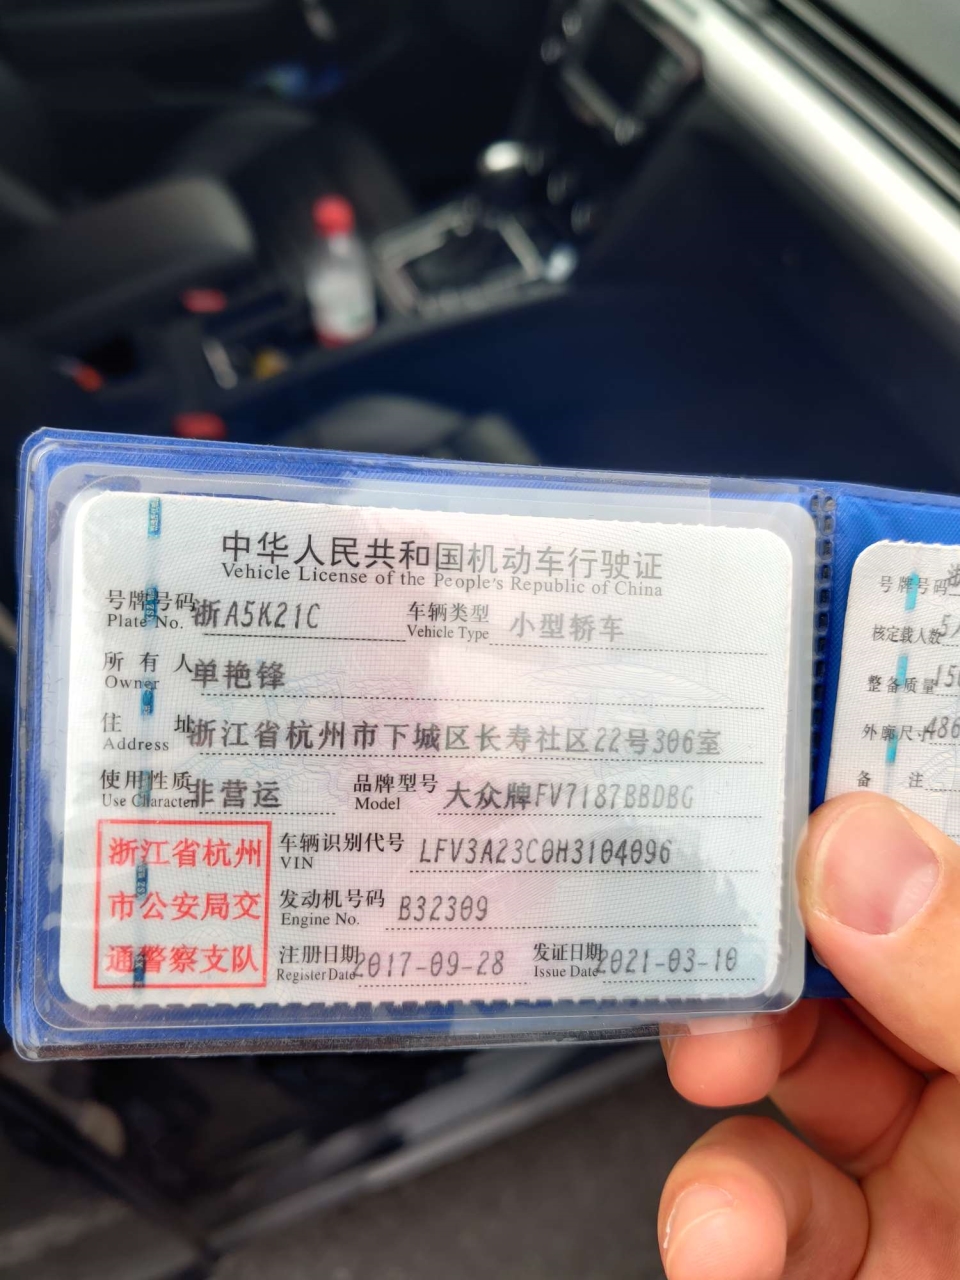 中华人民共和国机动车行驶证
Vehicle License of the People's Republic of China
号牌号码 浙A5K21C 车辆类型 小型轿车
Plate No. Vehicle Type
所有人 单艳锋
Owner
住址 浙江省杭州市下城区长寿社区22号306室
Address
使用性质 非营运 品牌型号 大众牌FV7187BBDBG
Use Character Model
浙江省杭州
市公安局交
通警察支队
车辆识别代号 LFV3A23C0H3104096
VIN
发动机号码 B32309
Engine No.
注册日期 2017-09-28 发证日期 2021-03-10
Register Date Issue Date
号牌号码 浙
核定载人数 5
整备质量 150
外廓尺寸 486
备注